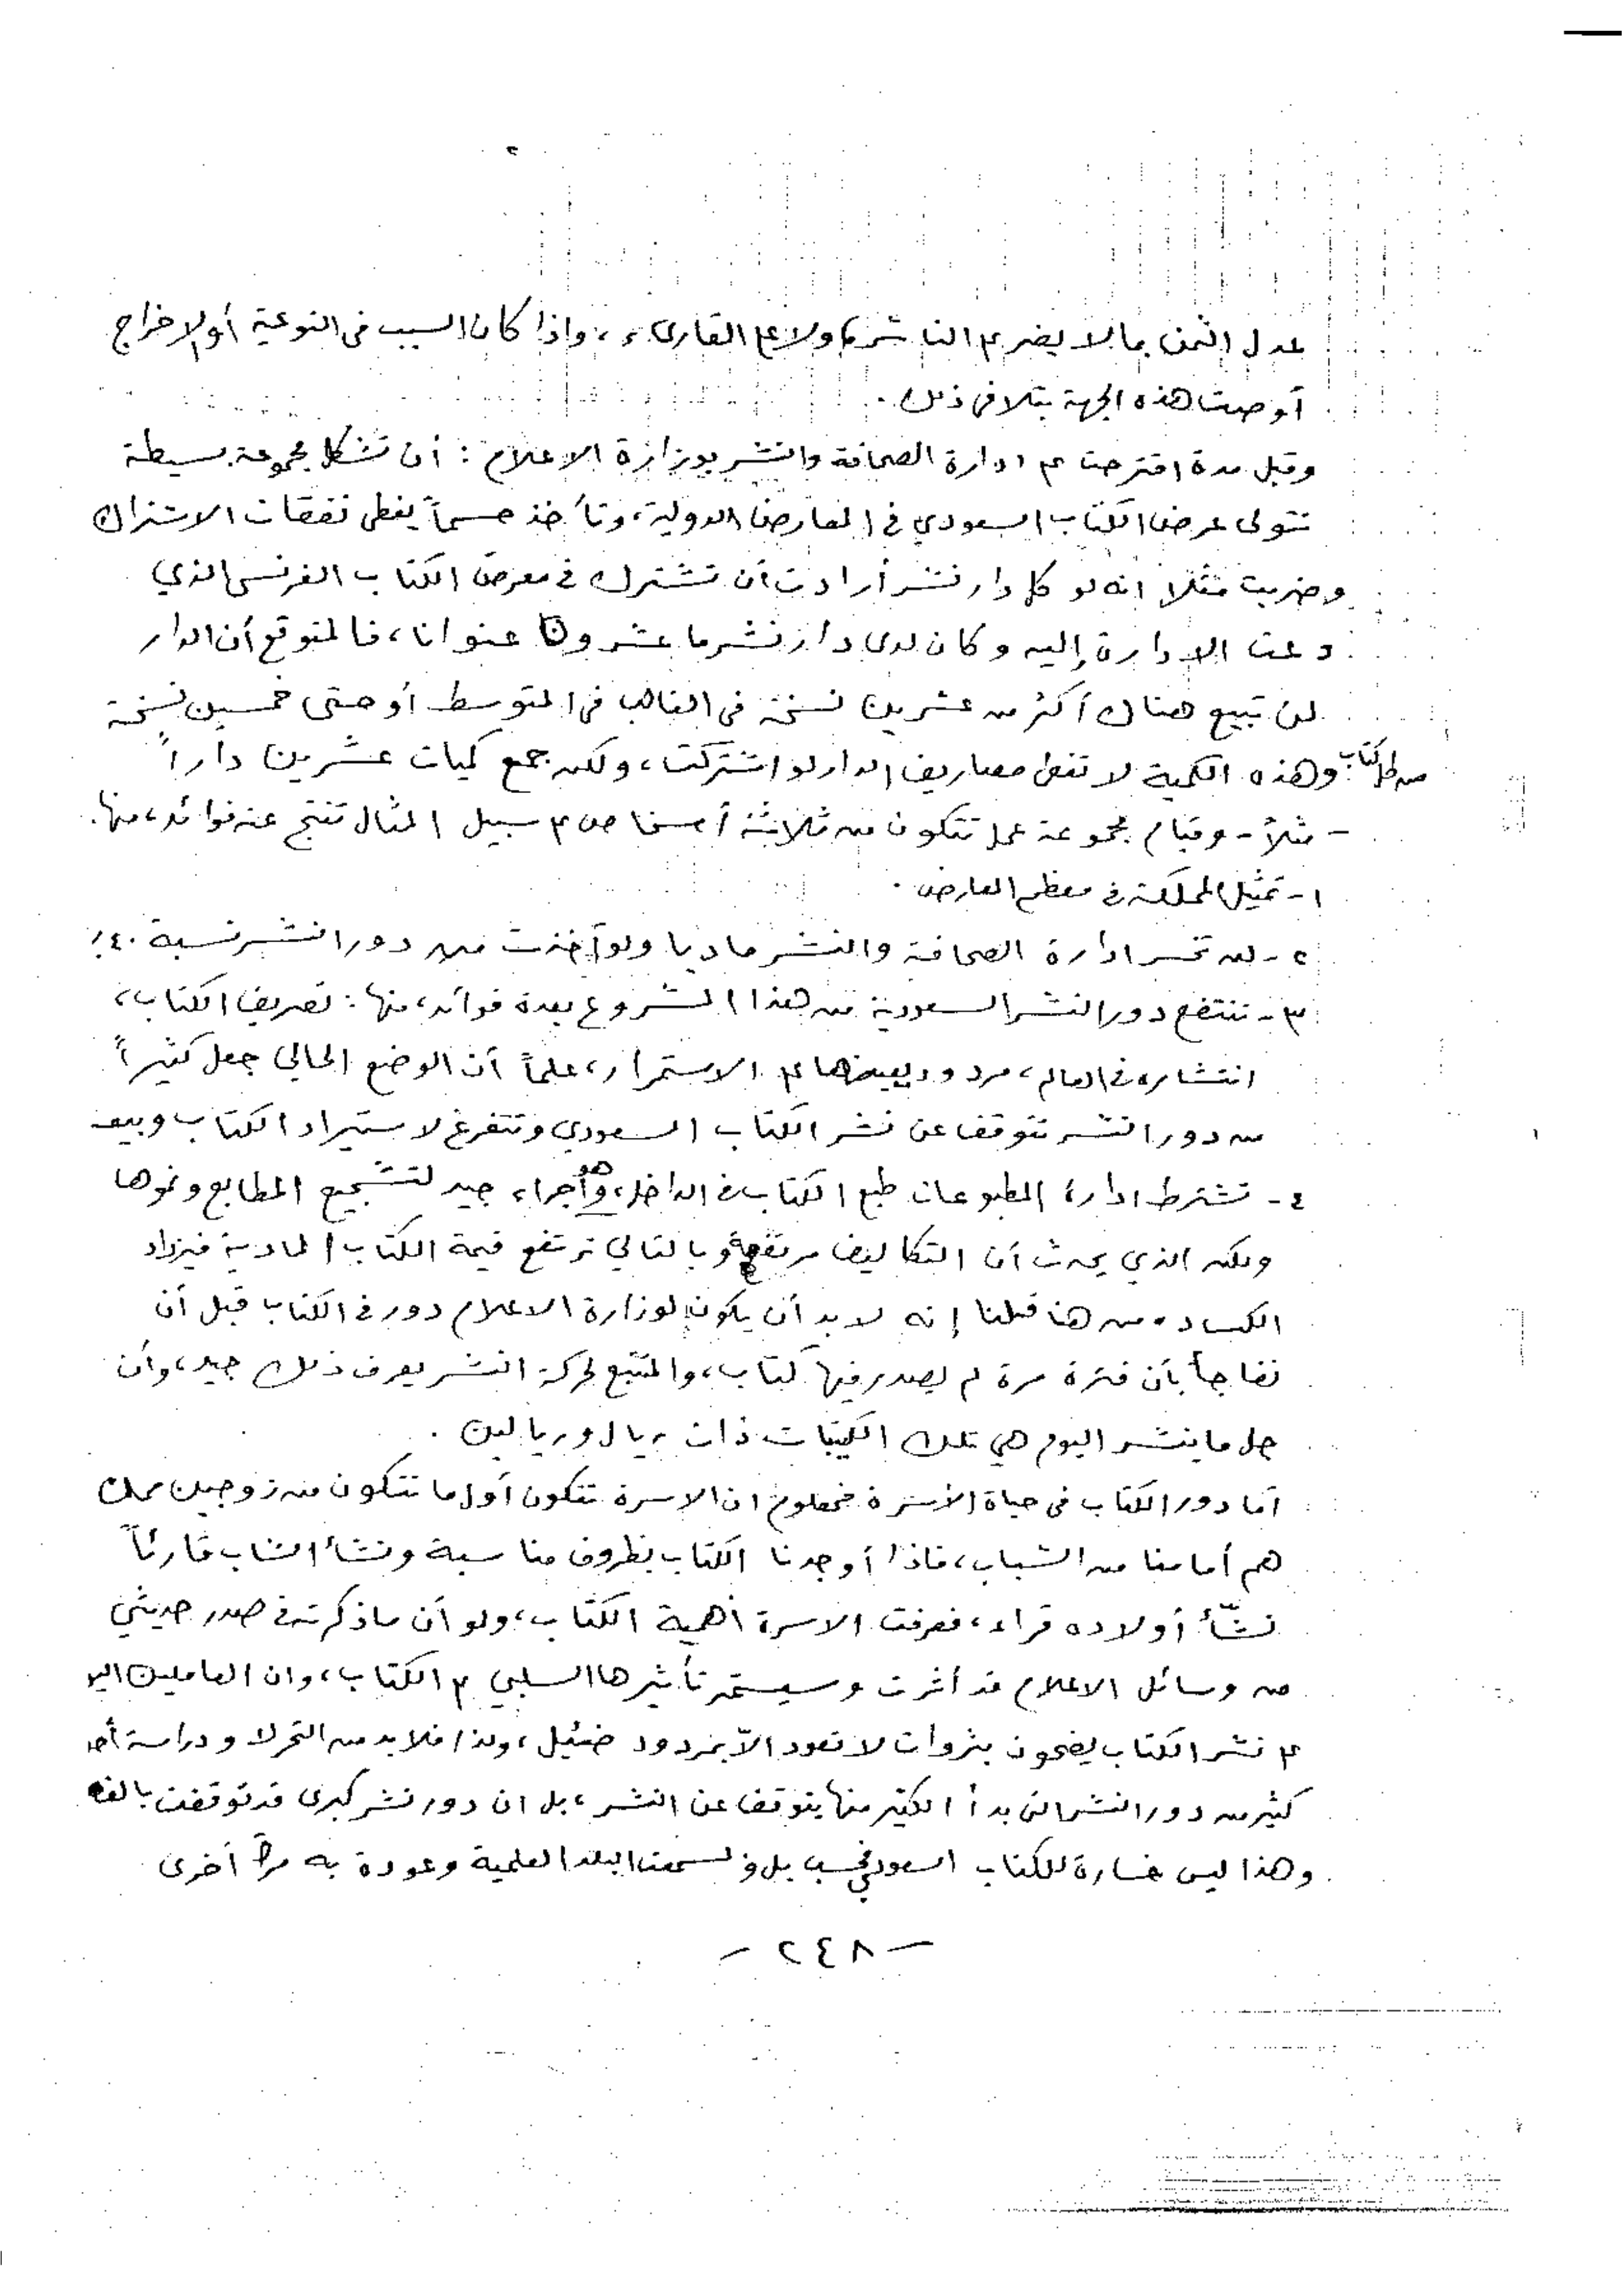 عدل الثمن بما لا يضر على الناشر ولا على القارىء، واذا كان السبب في النوعية أو الاخراج
أوصت هذه الجهة بتلافي ذلك .
وقبل مدة اقترحت على ادارة الصحافة والنشر بوزارة الاعلام : أن تشكل مجموعة بسيطة
تتولى عرض الكتاب السعودي في المعارض الدولية، وتأخذ حسماً يغطي نفقات الاشتراك
وضربت مثلا انه لو كل دار نشر أرادت أن تشترك في معرض الكتاب الفرنسي الذي
دعت الادارة إليه وكان لدى دار نشر ما عشرون عنوانا، فالمتوقع أن الدار
لن تبيع هناك أكثر من عشرين نسخة في الغالب في المتوسط أو حتى خمسين نسخة
من كل كتاب وهذه الكمية لا تغطي مصاريف الدار لو اشتركت، ولكن جمع كميات عشرين داراً
- مثلاً - وقيام مجموعة عمل تتكون من ثلاثة أشخاص على سبيل المثال تنتج عنه فوائد، منها.
١- تمثيل المملكة في معظم المعارض .
٢- لن تخسر ادارة الصحافة والنشر ماديا ولو أخذت من دور النشر نسبة ٤٠٪
٣- تنتفع دور النشر السعودية من هذا المشروع بعدة فوائد، منها : تصريف الكتاب،
انتشاره في العالم، مردود يعينها على الاستمرار، علماً أن الوضع الحالي جعل كثيراً
من دور النشر تتوقف عن نشر الكتاب السعودي وتتفرغ لاستيراد الكتاب وبيعه
٤- تشترط ادارة المطبوعات طبع الكتاب في الداخل، وهو أجراء جيد لتشجيع المطابع ونموها
ولكن الذي يحدث أن التكاليف مرتفعة وبالتالي ترتفع قيمة الكتاب المادية فيزداد
الكساد، من هنا قلنا إنه لا بد أن يكون لوزارة الاعلام دور في الكتاب قبل أن
نفاجأ بأن فترة مرة لم يصدر فيها كتاب، والمتتبع لحركة النشر يعرف ذلك جيد، وأن
جل ما ينشر اليوم هي تلك الكتيبات ذات ريال وريالين .
أما دور الكتاب في حياة الأسرة فمعلوم ان الاسرة تتكون أول ما تتكون من زوجين ممن
هم أمامنا من الشباب، فاذا أوجدنا الكتاب بظروف مناسبة ونشأ الشاب قارئاً
نشّأ أولاده قراء، فعرفت الاسرة أهمية الكتاب، ولو أن ما ذكرته في صدر حديثي
من وسائل الاعلام قد أثرت وسيستمر تأثيرها السلبي على الكتاب، وان العاملين اليوم
على نشر الكتاب يضحون بثروات لا تعود الاّ بمردود ضئيل، ولذا فلا بد من التحرك ودراسة
كثير من دور النشر التي بدأ الكثير منها يتوقف عن النشر، بل ان دور نشر كبرى قد توقفت
وهذا ليس خسارة للكتاب السعودي فحسب بل في سمعة البلد العلمية وعودة به مرة أخرى
- ٢٤٨ -